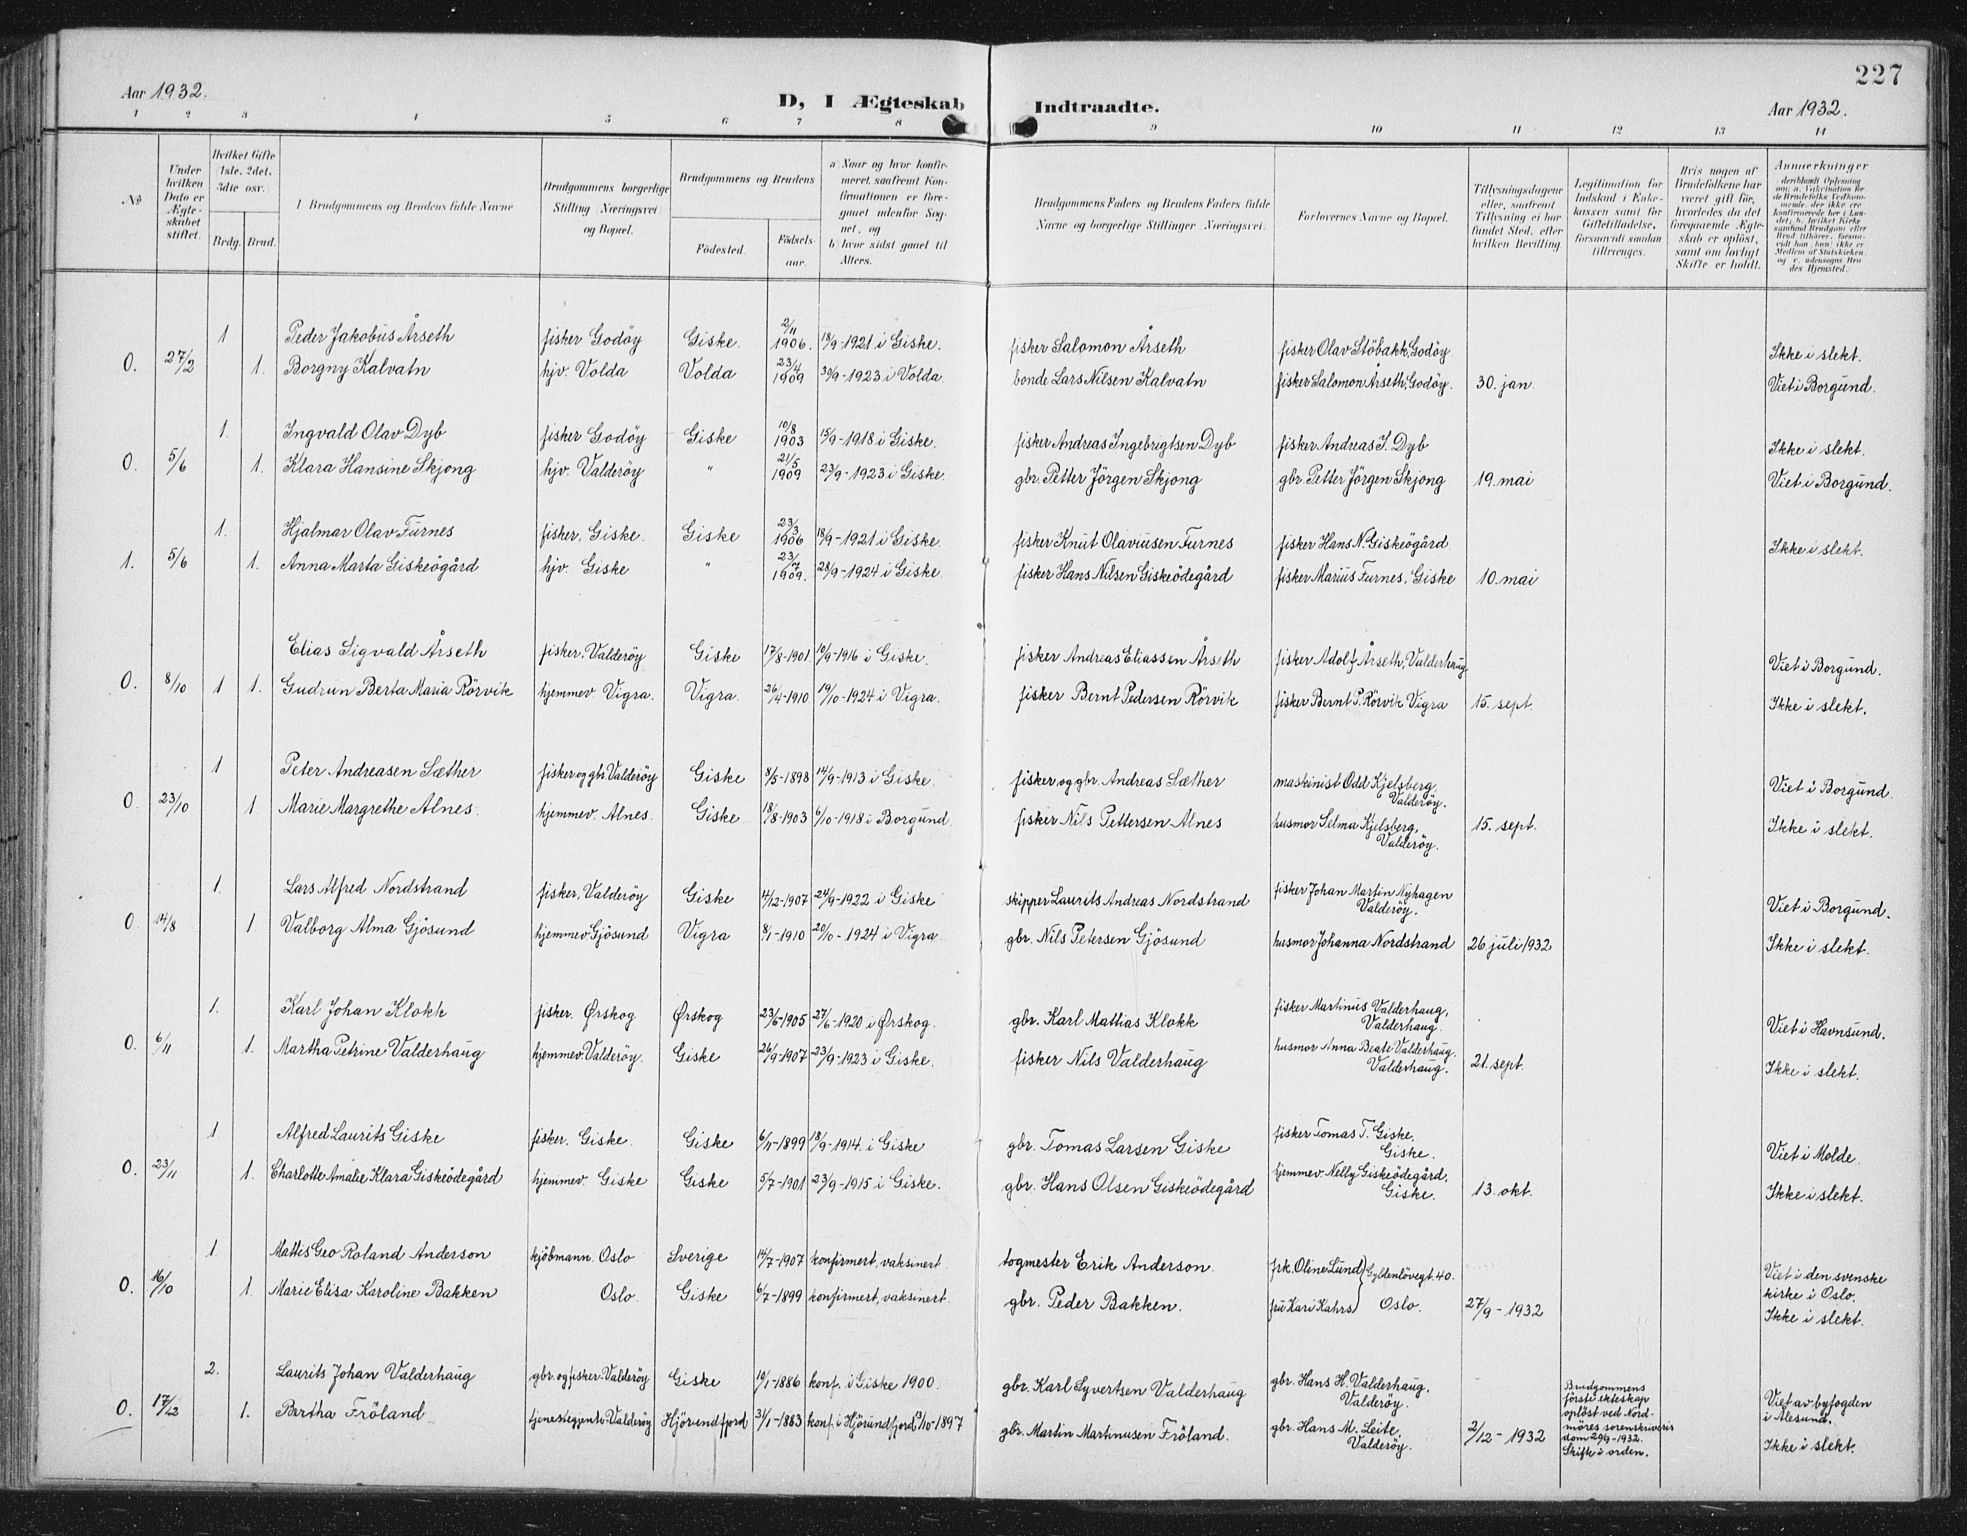 227
Aar 1932. D, I Ægteskab Indtraadte. Aar 1932.
1 2 3 4 5 6 7 8 9 10 11 12 13 14
No
Under hvilken Dato er Ægteskabet stiftet.
Hvilket Gifte 1ste, 2det, 3die osv.
Brdg. Brud.
1 Brudgommens og Brudens fulde Navne
Brudgommens borgerlige Stilling Næringsvei og Bopæl.
Brudgommens og Brudens
Födested. Födsels-aar.
a Naar og hvor konfirmeret, saafremt Konfirmationen er foregaaet udenfor Sognet, og
b hvor sidst gaaet til Alters.
Brudgommens Faders og Brudens Faders fulde Navne og borgerlige Stillinger Næringsvei.
Forlovernes Navne og Bopæl.
Tillysningsdagene eller, saafremt Tillysning ei har fundet Sted, efter hvilken Bevilling
Legitimation for Indskud i Enkekassen samt for Giftetilladelse, forsaavidt saadan tiltrænges.
Hvis nogen af Brudefolkene har været gift för, hvorledes da det foregaaende Ægteskab er oplöst, samt om lovligt Skifte er holdt.
Anmerkninger
1 Peder Jakobus Årseth fisker Godöy Giske. 2/11 1906. 18/9-1921 i Giske. fisker Salomon Årseth fisker Olav Stöbakk, Godöy Ikke i slekt.
0. 27/2 1. Borgny Kalvatn hjv. Volda Volda 23/4 1909 30/9-1923 i Volda. bonde Lars Nilsen Kalvatn fisker Salomon Årseth, Godöy. 30. jan Viet i Borgund.
1. Ingvald Olav Dyb fisker Godöy Giske 10/8 1903 15/9-1918 i Giske. fisker Andreas Ingebrigtsen Dyb fisker Andreas I. Dyb Ikke i slekt.
0. 5/6 1. Klara Hansine Skjong hjv. Valderöy " 21/5 1909 23/9-1923 i Giske. gbr. Petter Jörgen Skjong gbr. Petter Jörgen Skjong 19. mai Viet i Borgund.
1. Hjalmar Olav Furnes fisker, Giske. Giske 23/3 1906 18/9-1921 i Giske. fisker Knut Olaviusen Furnes fisker Hans N. Giskeögård Ikke i slekt.
1. 5/6 1. Anna Marta Giskeögård hjv. Giske " 23/7 1909. 28/9-1924 i Giske. fisker Hans Nilsen Giskeödegård fisker Marius Furnes, Giske 10. mai
Elias Sigvald Årseth fisker. Valderöy Giske 17/8-1901 10/9-1916 i Giske. fisker Andreas Eliassen Årseth fisker Adolf Årseth, Valderhaug Viet i Borgund.
0. 8/10 1 1. Gudrun Berta Maria Rörvik hjemmev. Vigra. Vigra. 26/4-1910. 19/10-1924 i Vigra. fisker Bernt Pedersen Rörvik fisker Bernt P. Rörvik Vigra 15. sept. Ikke i slekt.
1 Peter Andreasen Sæther fisker og gbr. Valderöy Giske 8/5-1898 14/9-1913 i Giske. fisker og gbr. Andreas Sæther maskinist Odd Kjelsberg, Valderöy. Viet i Borgund
0. 23/10 1 Marie Margrethe Alnes. hjemmev. Alnes. Giske 18/8-1903 6/10-1918 i Borgund. fisker Nils Pettersen Alnes husmor Selma Kjelsberg, Valderöy. 15. sept. Ikke i slekt.
1. Lars Alfred Nordstrand fisker, Valderöy Giske 4/12-1907 24/9-1922 i Giske skipper Laurits Andreas Nordstrand fisker Johan Martin Nyhagen Valderöy. Viet i Borgund.
0. 14/8 1. Valborg Alma Gjösund hjemmev. Gjösund Vigra 8/1-1910 20/10-1924 i Vigra. gbr. Nils Petersen Gjösund husmor Johanna Nordstrand 26. juli 1932 Ikke i slekt.
1. Karl Johan Klokk fisker. Ørskog Ørskog 23/6-1905 27/6-1920 i Ørskog. gbr. Karl Mattias Klokk fisker Martinus Valderhaug, Valderhaug. Viet i Havnsund.
0. 6/11 1. Martha Petrine Valderhaug hjemmev. Valderöy. Giske 26/9-1907 23/9-1923 i Giske. fisker Nils Valderhaug husmor Anna Beate Valderhaug. Valderhaug. 21. sept. Ikke i slekt.
1. Alfred Laurits Giske fisker. Giske. Giske 6/11-1899 18/9-1914. i Giske gbr. Tomas Larsen Giske fisker Tomas T. Giske, Giske. Viet i Molde.
0. 23/11 1. Charlotte Amalie Klara Giskeödegård hjemmev. Giske Giske 5/7-1901 23/9-1915 i Giske. gbr. Hans Olsen Giskeödegård hjemmev. Nelly Giskeödegård, Giske. 13. okt. Ikke i slekt.
1. Mattis Geo Roland Anderson kjöbmann. Oslo Sverige 14/7-1907 konfirmert, vaksinert togmester Erik Anderson. frk. Oline Lund Gyldenlövegt. 40. Viet i den svenske kirke i Oslo.
0. 16/10 1. Marie Elisa Karoline Bakken Oslo. Giske 6/7-1899 konfirmert, vaksinert. gbr. Peder Bakken. fru Kari Kahrs Oslo. 27/9-1932 Ikke i slekt.
2. Laurits Johan Valderhaug gbr. og fisker. Valderöy Giske 10/1-1886 konf. i Giske 1900. gbr. Karl Syvertsen Valderhaug gbr. Hans H. Valderhaug, Valderöy. Brudgommens förste ekteskap oplöst ved Nordmöres sorenskriveris dom 29/9-1932. Skifte i orden. Viet av byfogden i Ålesund.
0. 17/12 1. Bertha Fröland tjenestegjente. Valderöy Hjörundfjord 31/1-1883 konf. i Hjörundfjord 3/10-1897 gbr. Martin Martinusen Fröland. gbr. Hans M. Leite, Valderöy. 2/12-1932 Ikke i slekt.